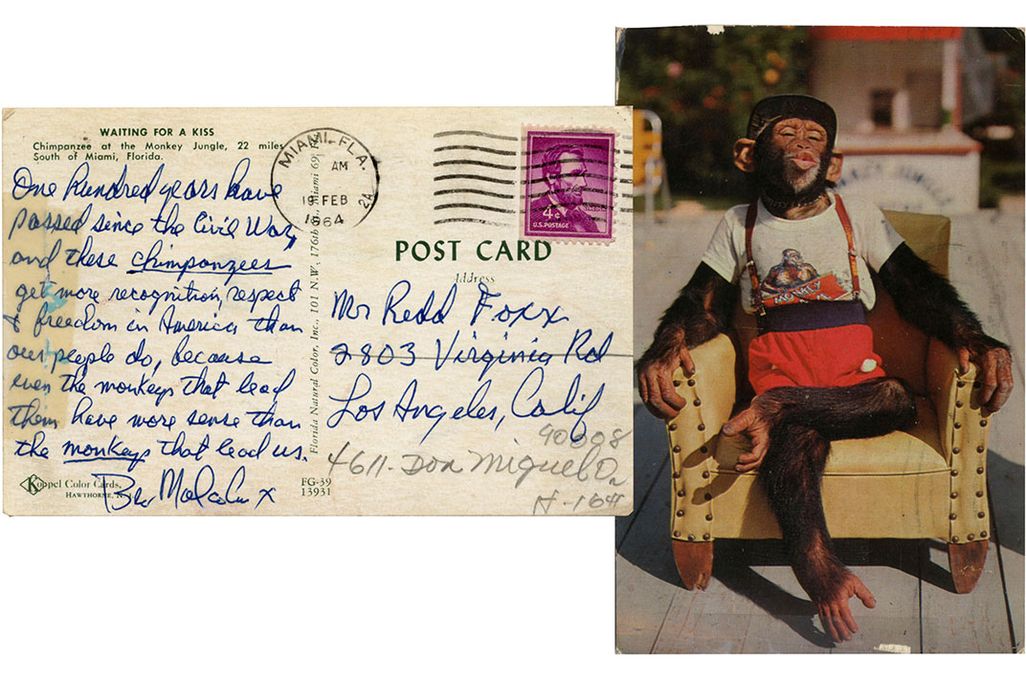 WAITING FOR A KISS
Chimpanzee at the Monkey Jungle, 22 miles
South of Miami, Florida.
One hundred years have
passed since the Civil War,
and these chimpanzees
get more recognition, respect
& freedom in America than
our people do, because
even the monkeys that lead
them have more sense than
the monkeys that lead us.
Bro Malcolm X
Koppel Color Cards,
HAWTHORNE, N.J.
Florida Natural Color, Inc., 101 N.W. 176th St., Miami 69,
FG-39
13931
MIAMI, FLA.
AM
19 FEB
1964
4¢
U.S. POSTAGE
POST CARD
Address
Mr Redd Foxx
2803 Virginia Rd
Los Angeles, Calif
90008
4611- Don Miguel Dr
MONKEY